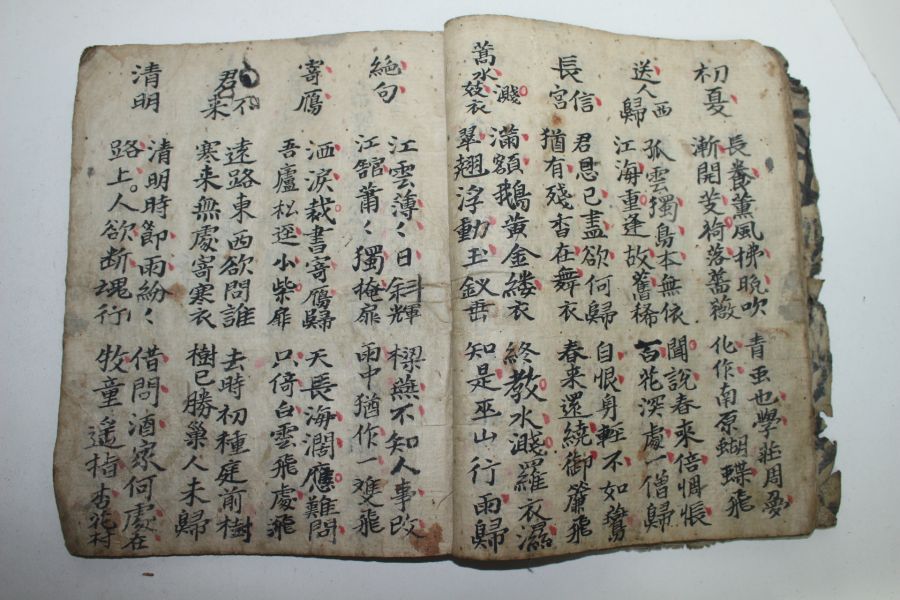 初夏
長養薰風拂曉吹
漸開芰荷落薔薇
青虫也學莊周夢
化作南原蝴蝶飛
送人西歸
孤雲獨島本無依
江海重逢故舊稀
聞說春來倍惆悵
百花深處一僧歸
長信宮
君恩已盡欲何歸
猶有殘香在舞衣
自恨身輕不如鷰
春來還繞御簾飛
蒿水濺妓衣
滿額鵝黃金縷衣
翠翹浮動玉釵垂
終教水濺羅衣濕
知是巫山行雨歸
絶句
江雲薄〻日斜輝
江舘蕭〻獨掩扉
樑燕不知人事改
雨中猶作一雙飛
寄鴈
洒淚裁書寄鴈歸
吾廬松逕小柴扉
天長海濶應難問
只倚白雲飛處飛
君不來
遠路東西欲問誰
寒來無處寄寒衣
去時初種庭前樹
樹已勝巢人未歸
清明
清明時節雨紛〻
路上。人欲断魂行
借問酒家何處在
牧童遥指杏花村